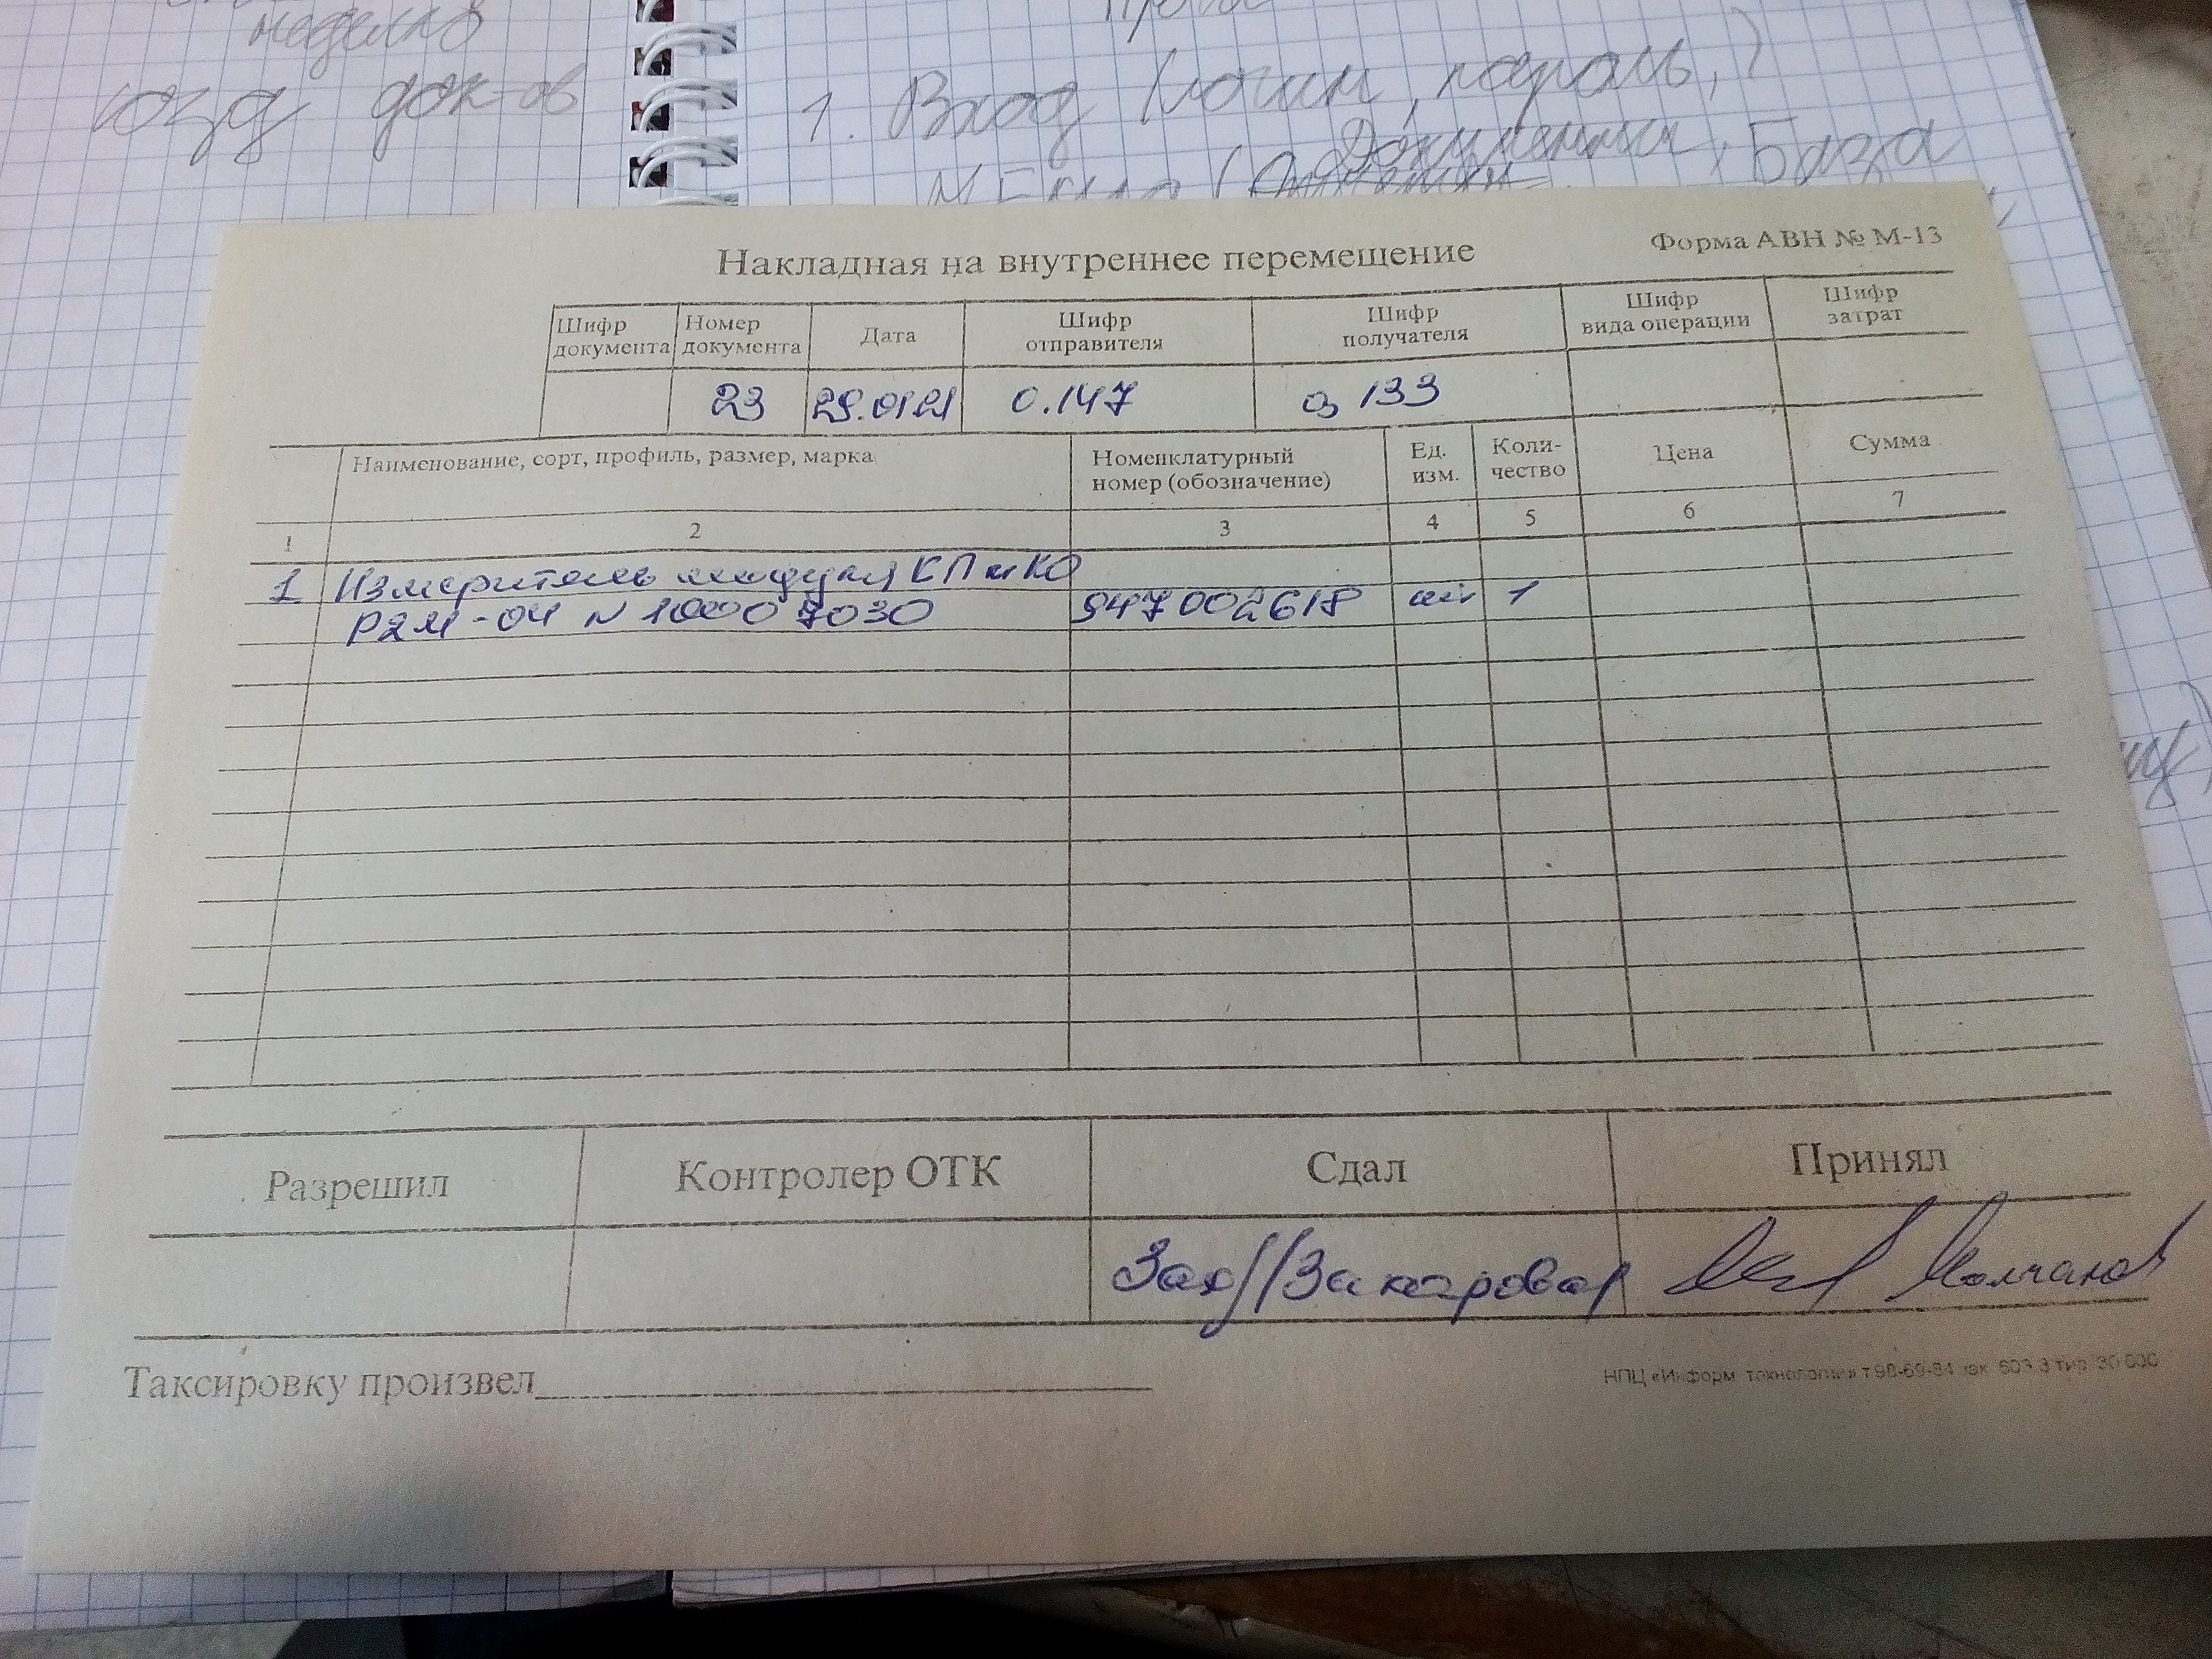 неделю
док-ов
1. Вход (логин, пароль,)
Документы, База
Накладная на внутреннее перемещение
Форма АВН № М-13
Шифр документа
Номер документа
Дата
Шифр отправителя
Шифр получателя
Шифр вида операции
Шифр затрат
23
0.147
133
Наименование, сорт, профиль, размер, марка
Номенклатурный номер (обозначение)
Ед. изм.
Коли-чество
Цена
Сумма
1 2 3 4 5 6 7
1 Измеритель модуля КП и КО
Р2М-04 N 10007030 947002618 шт 1
Разрешил
Контролер ОТК
Сдал
Принял
Зах//Закирова/
Молчанов
Таксировку произвел
НПЦ «Информ. технологии» т.98-69-84 зак. 603.3 тир. 30 000